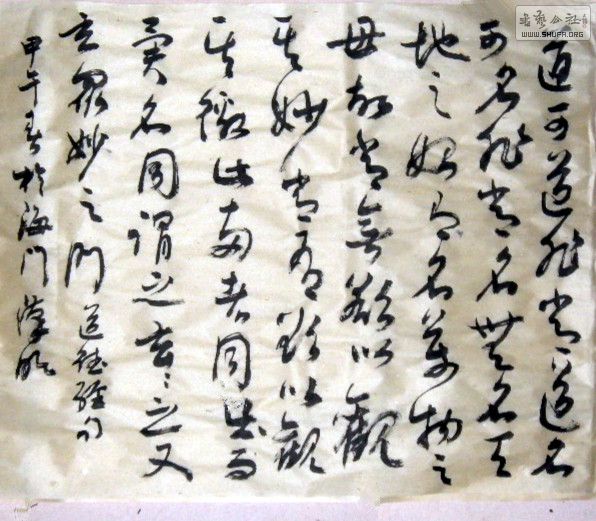 道可道非常道名
可名非常名無名天
地之始有名萬物之
母故常無欲以觀
其妙常有欲以觀
其徼此兩者同出而
異名同謂之玄〻之又
玄眾妙之門 道德經句
甲午春於海門
書藝公社
WWW.SHUFA.ORG